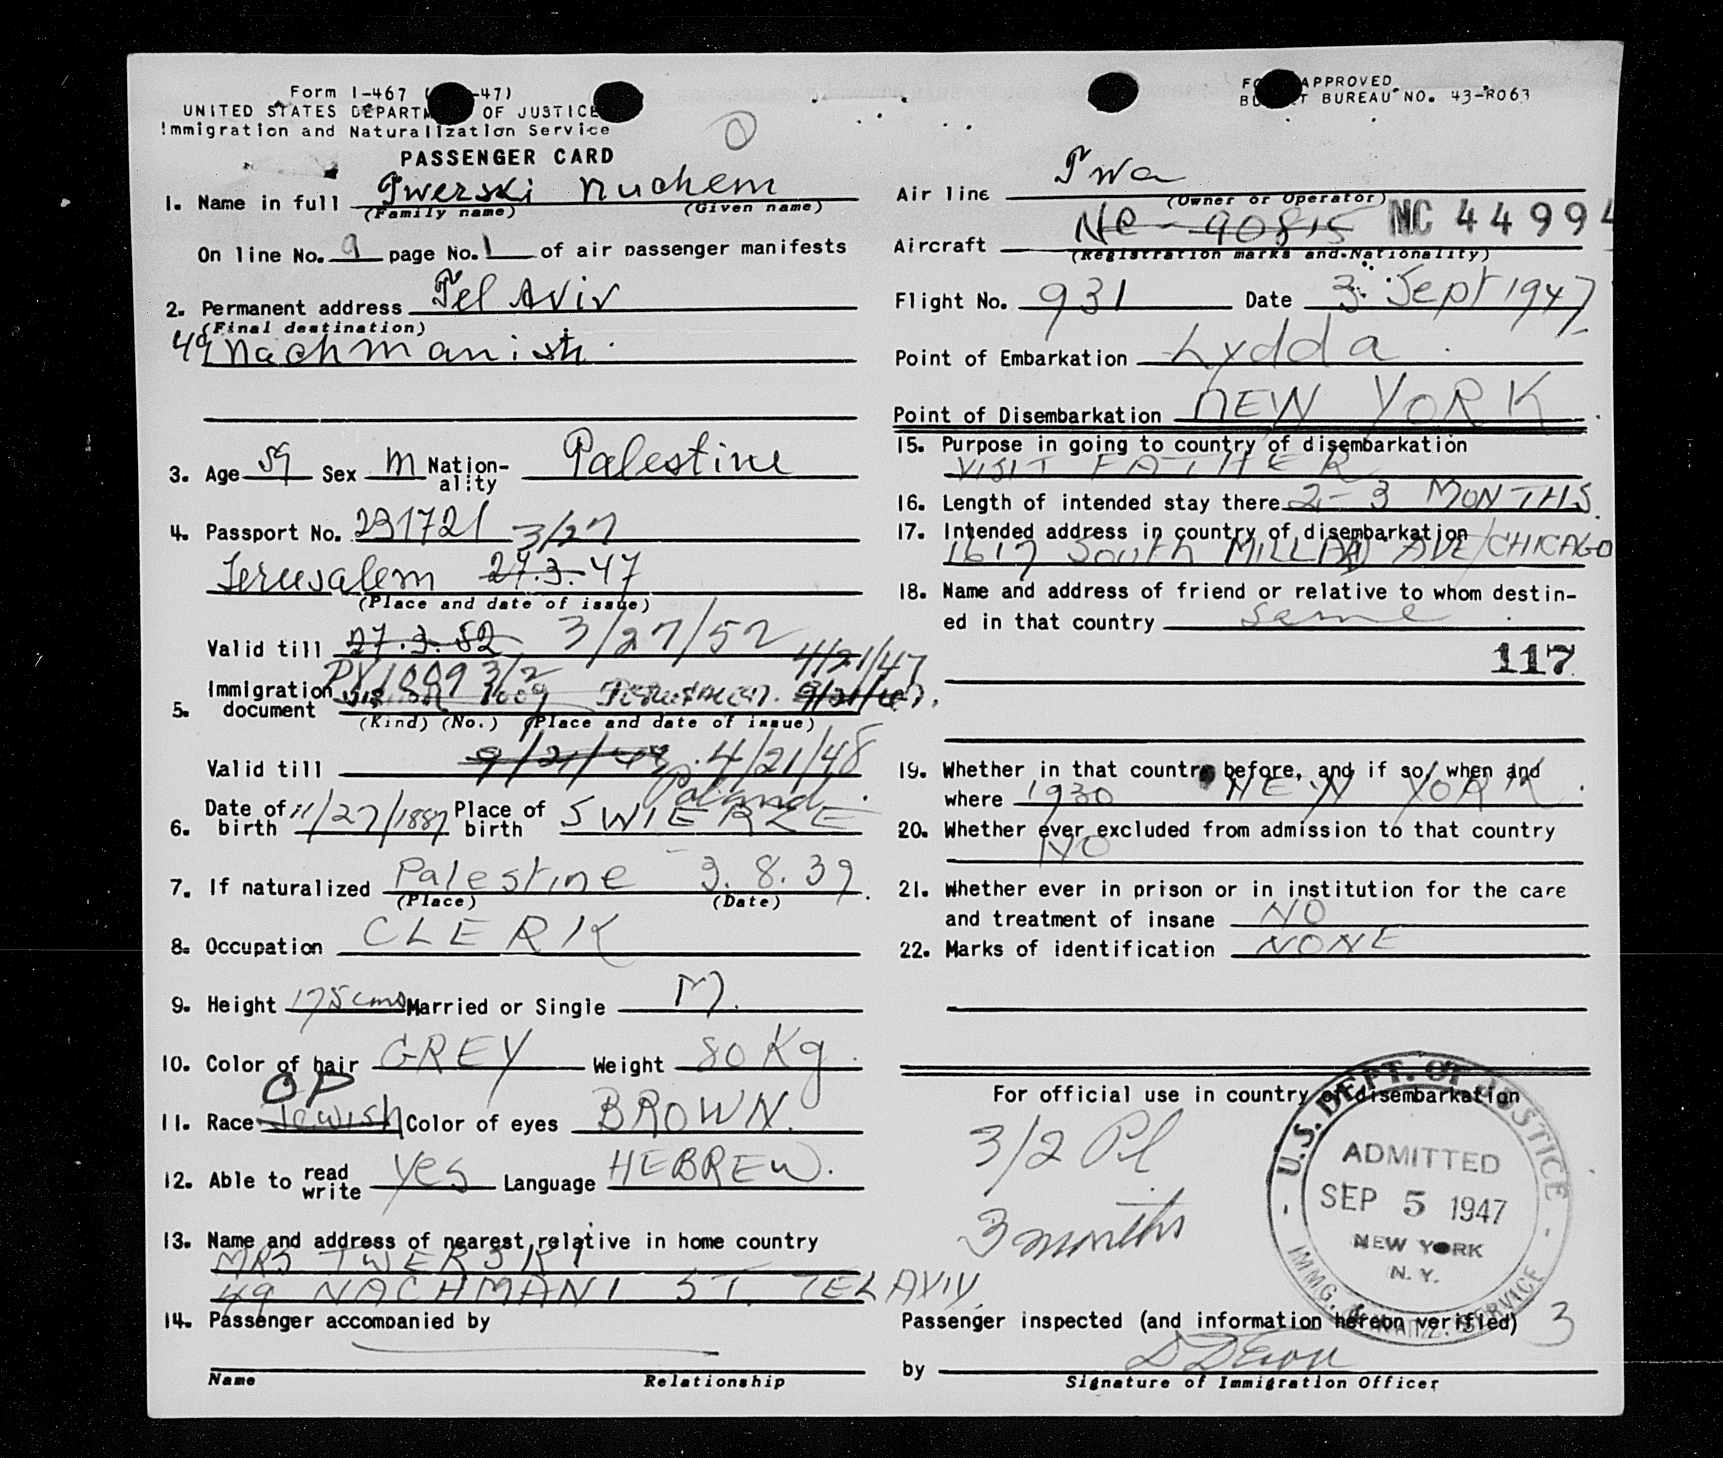 Form I-467 ( -47)
UNITED STATES DEPARTM OF JUSTICE
Immigration and Naturalization Service
PASSENGER CARD
1. Name in full Twerski Nuchem
(Family name) (Given name)
On line No. 9 page No. 1 of air passenger manifests
2. Permanent address Tel Aviv
(Final destination)
49 Nachmani str.
3. Age 59 Sex M Nation-ality Palestine
4. Passport No. 231721 3/27
Jerusalem 27.3.47
(Place and date of issue)
Valid till 27.3.52 3/27/52
4/21/47
5. Immigration document PV 1009 3/2
(Kind) (No.) (Place and date of issue)
Valid till 9/21/48 4/21/48
Poland
6. Date of birth 11/27/1887 Place of birth SWIERZE
7. If naturalized Palestine 3.8.39.
(Place) (Date)
8. Occupation CLERK
9. Height 175 cms Married or Single M.
10. Color of hair GREY Weight 80 Kg.
OP
11. Race Jewish Color of eyes BROWN.
12. Able to read write yes Language HEBREW.
13. Name and address of nearest relative in home country
MRS TWERSKI
49 NACHMANI ST. TEL AVIV.
14. Passenger accompanied by
Name Relationship
FO APPROVED
BU T BUREAU NO. 43-R063
Air line Twa
(Owner or Operator)
Aircraft NC-90815 NC 44994
(Registration marks and Nationality)
Flight No. 931 Date 3. Sept 1947
Point of Embarkation Lydda
Point of Disembarkation NEW YORK
15. Purpose in going to country of disembarkation
VISIT FATHER
16. Length of intended stay there 2-3 MONTHS.
17. Intended address in country of disembarkation
1617 South MILLARD AVE/CHICAGO
18. Name and address of friend or relative to whom destin-
ed in that country same
117
19. Whether in that country before, and if so, when and
where 1930 NEW YORK.
20. Whether ever excluded from admission to that country
NO
21. Whether ever in prison or in institution for the care
and treatment of insane NO
22. Marks of identification NONE
For official use in country of disembarkation
3/2 Pl
3 months
U.S. DEPT. OF JUSTICE
ADMITTED
SEP 5 1947
NEW YORK
N. Y.
IMMG. & NATZ. SERVICE
3
Passenger inspected (and information hereon verified)
by
Signature of Immigration Officer